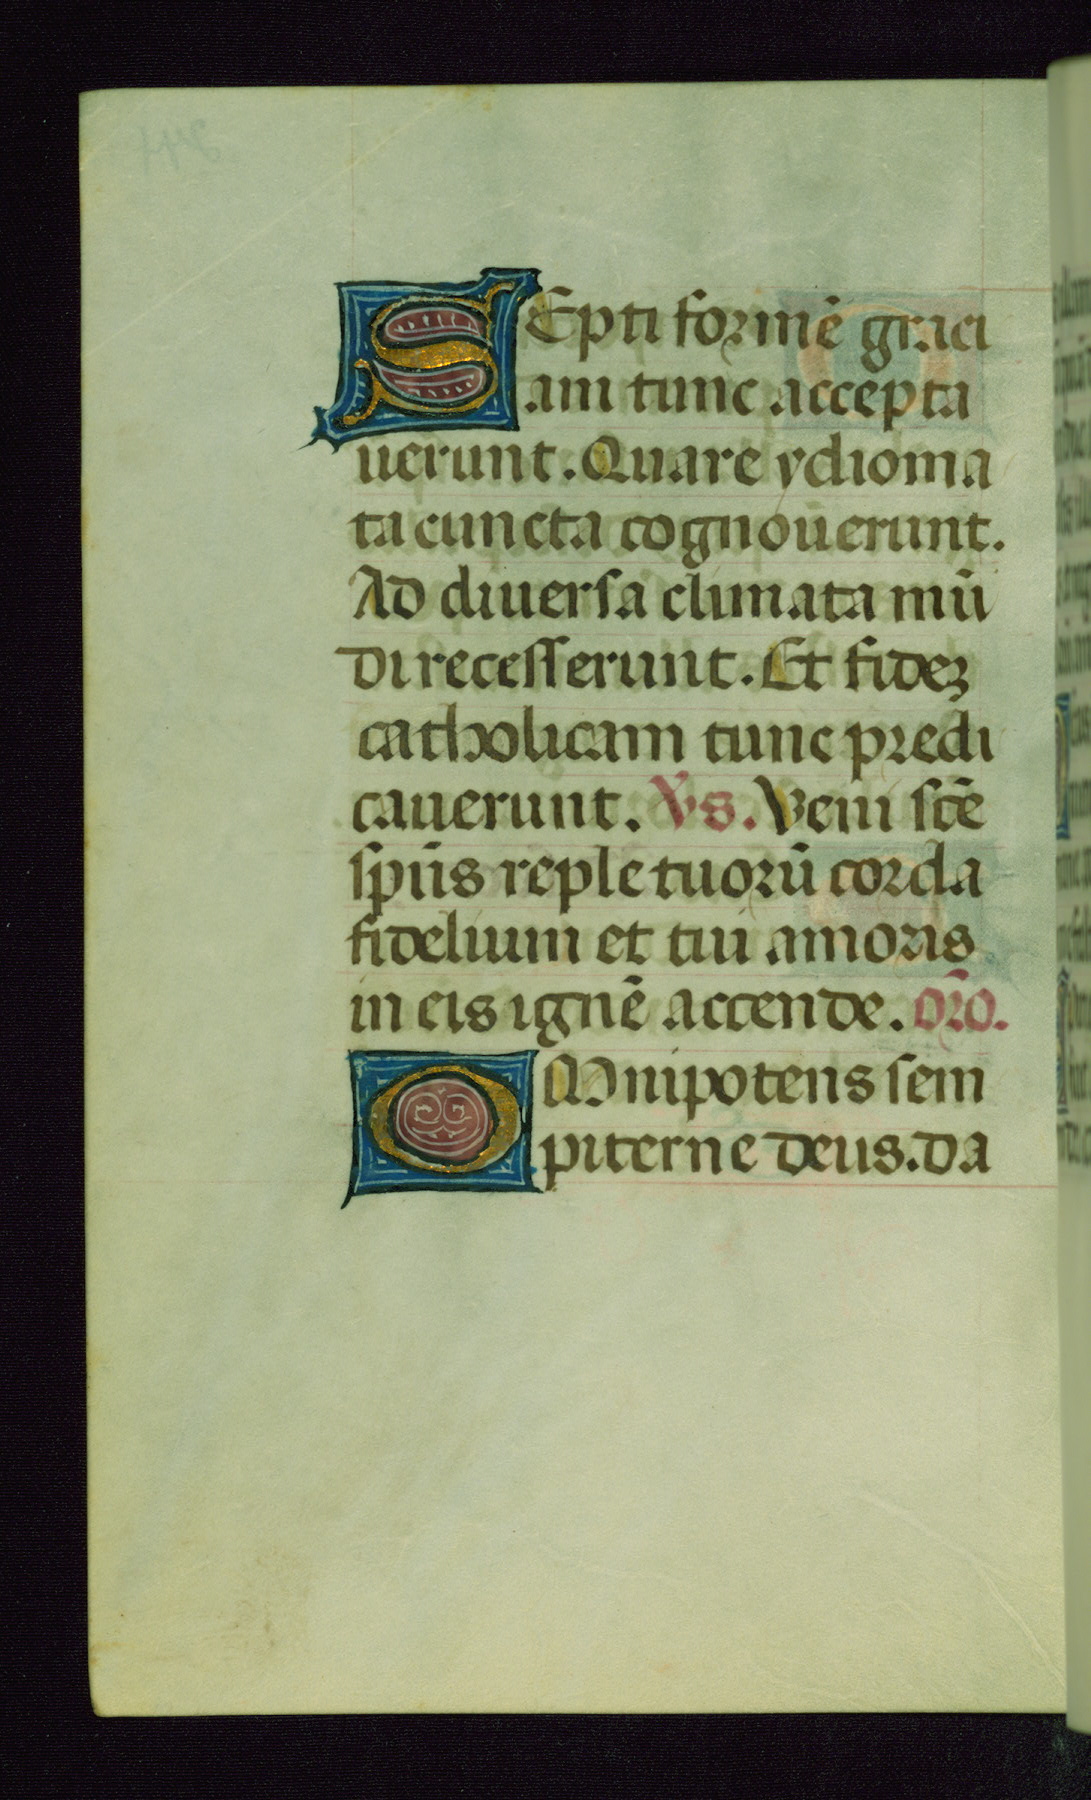 SEpti formē graci
am tunc accepta
uerunt. Quare ydioma
ta cuncta cognouerunt.
Ad diuersa climata mū
di recesserunt. Et fidez
catholicam tunc predi
cauerunt. Vs. Veni scē
spūs reple tuorū corda
fidelium et tui amoris
in eis ignē accende. orō.
OMnipotens sem
piterne deus. da